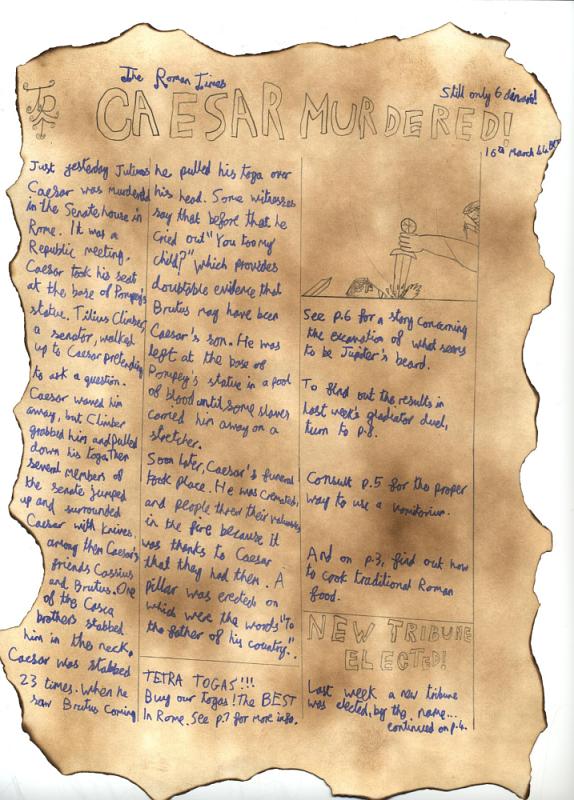 The Roman Times
Still only 6 denarii!
CAESAR MURDERED!
16th March 44 BC
Just yesterday Julius
Caesar was murdered
in the Senate house in
Rome. It was a
Republic meeting.
Caesar took his seat
at the base of Pompey's
statue. Tilius Climber,
a senator, walked
up to Caesar pretending
to ask a question.
Caesar waved him
away, but Climber
grabbed him and pulled
down his toga. Then
several members of
the senate jumped
up and surrounded
Caesar with knives.
among them Caesar's
friends Cassius
and Brutus. One
of the Casca
brothers stabbed
him in the neck.
Caesar was stabbed
23 times. When he
saw Brutus coming
he pulled his toga over
his head. Some witnesses
say that before that he
cried out "You too my
child?" which provides
doubtable evidence that
Brutus may have been
Caesar's son. He was
left at the base of
Pompey's statue in a pool
of blood until some slaves
carried him away on a
stretcher.
Soon later, Caesar's funeral
took place. He was cremated,
and people threw their valuables
in the fire because it
was thanks to Caesar
that they had them. A
pillar was erected on
which were the words "To
the father of his country."
TETRA TOGAS!!!
Buy our togas! The BEST
In Rome. See p.7 for more info.
See p.6 for a story concerning
the excavation of what seems
to be Jupiter's beard.
To find out the results in
last week's gladiator duel,
turn to p.8.
Consult p.5 for the proper
way to use a vomitorium.
And on p.3, find out how
to cook traditional Roman
food.
NEW TRIBUNE
ELECTED!
Last week a new tribune
was elected, by the name...
continued on p.4.